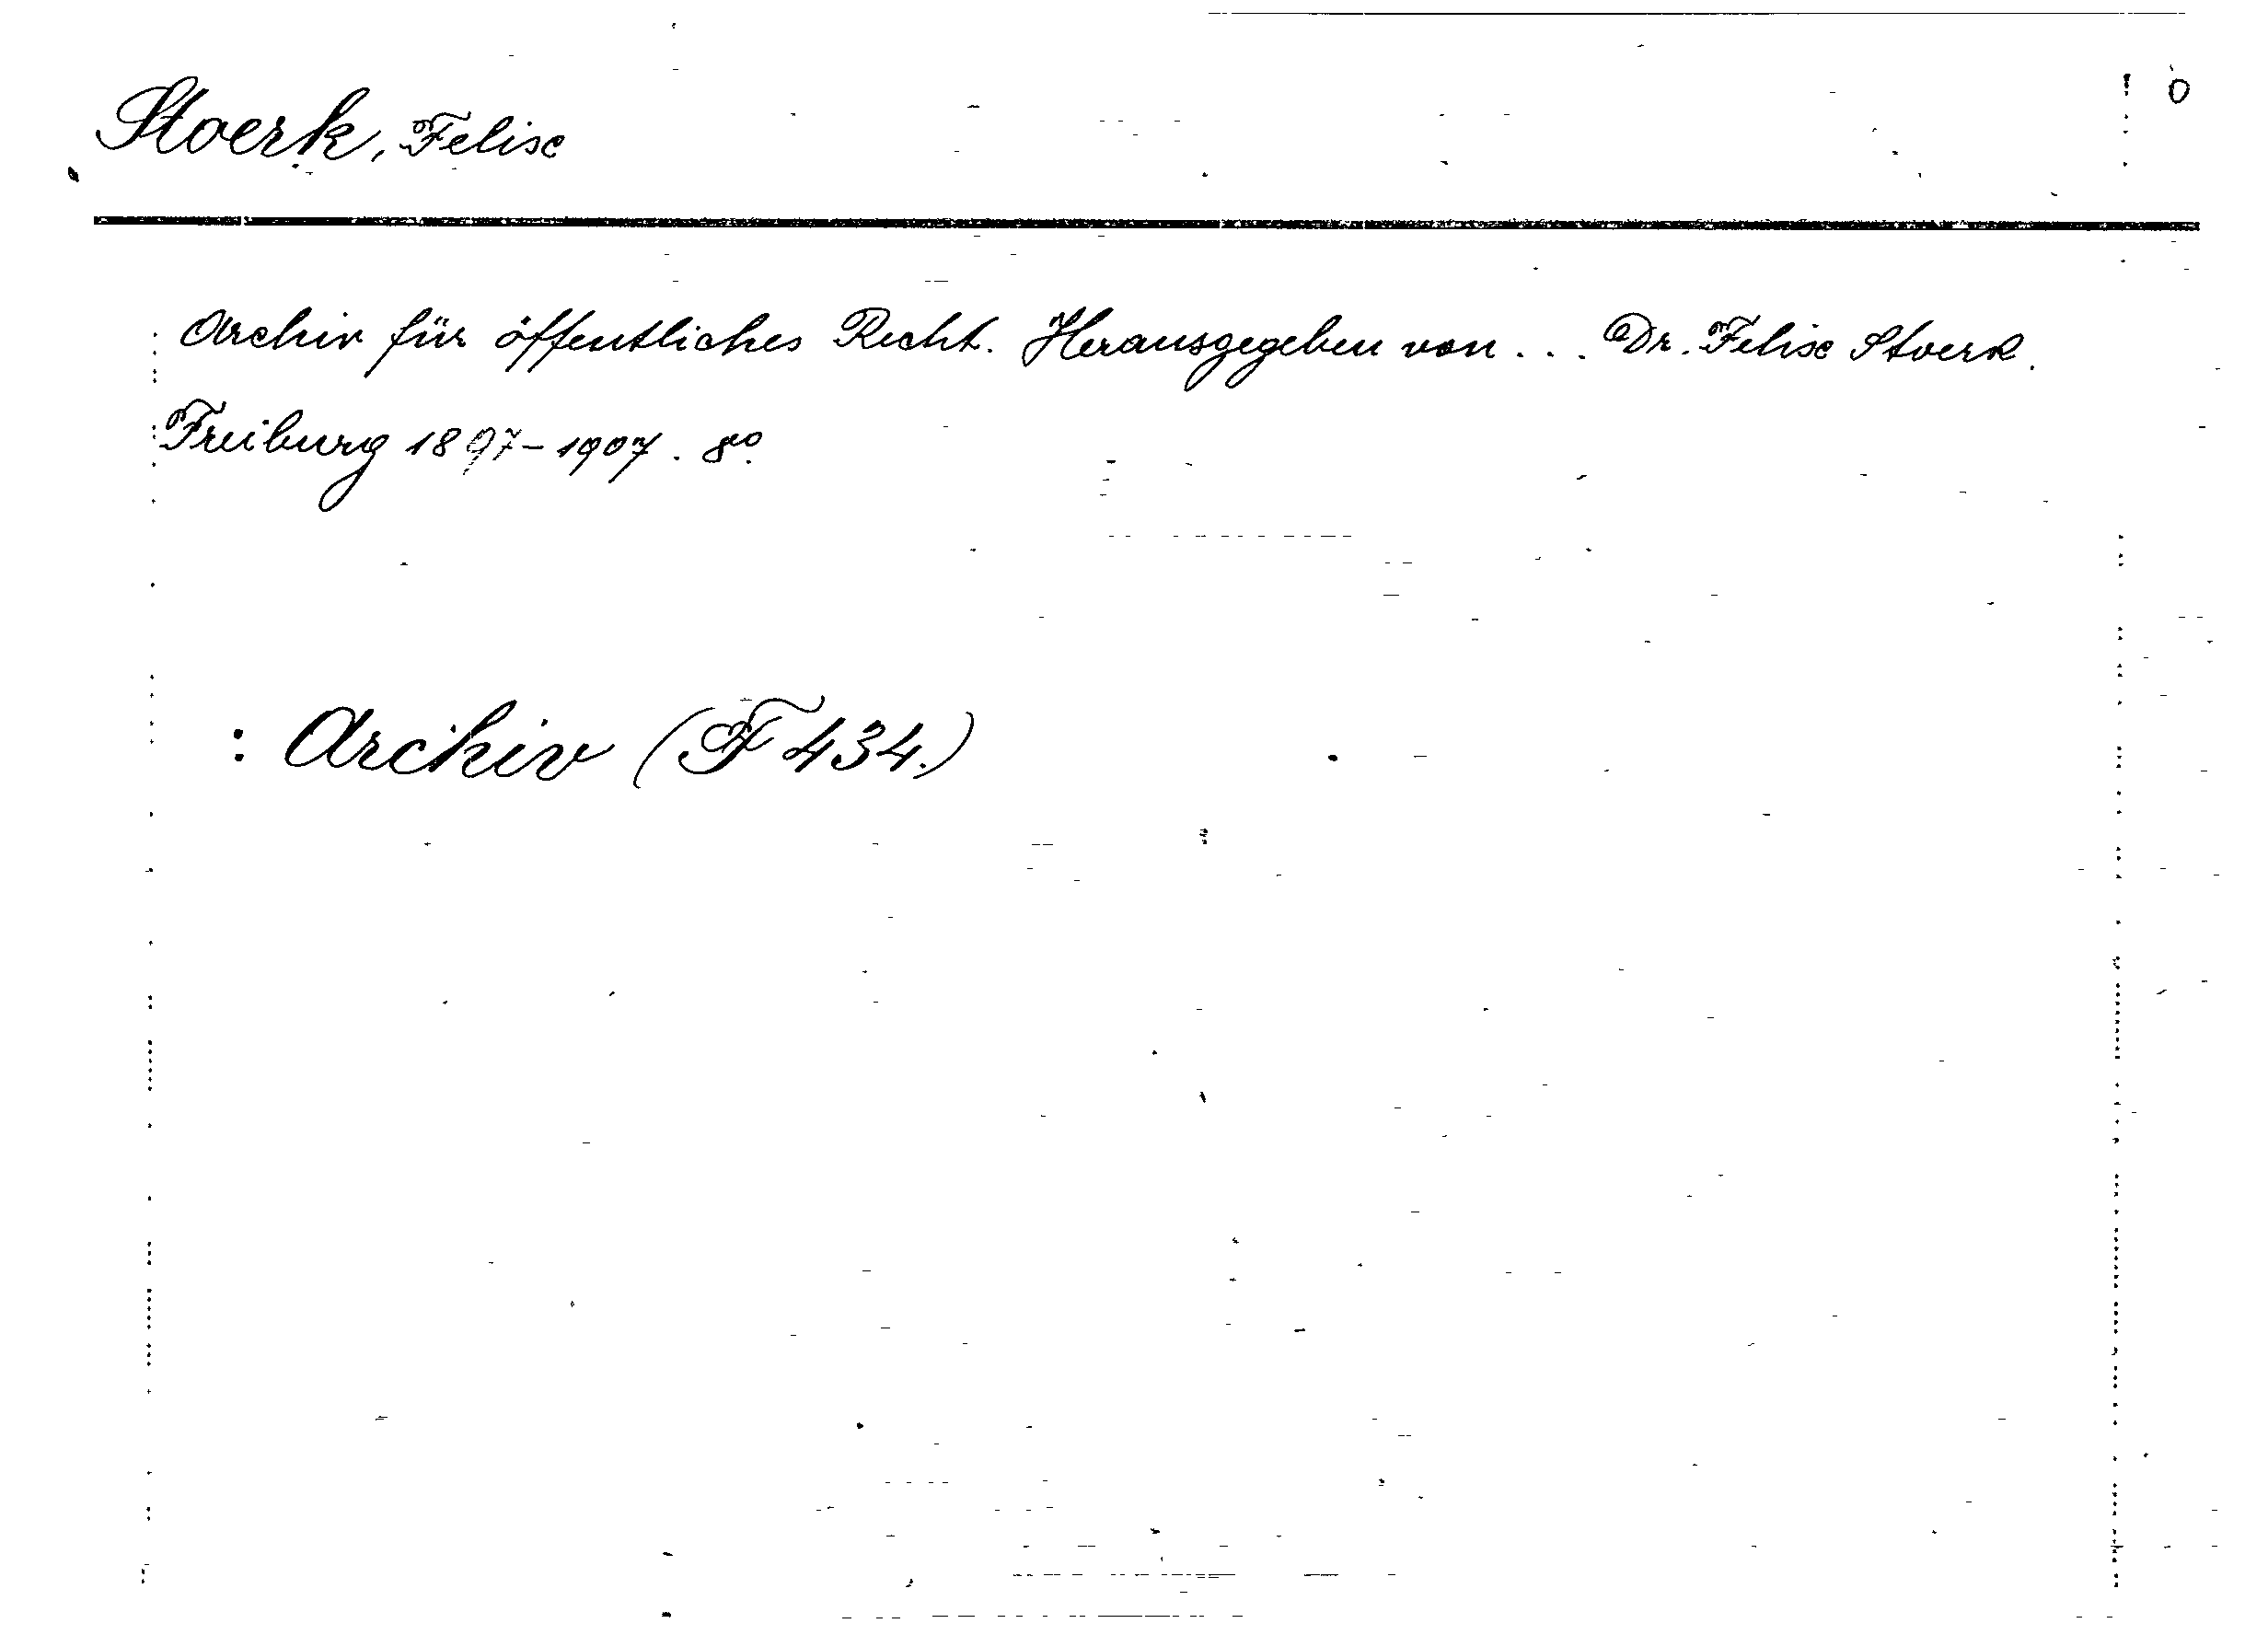 Stoerk, Felix
0
Archiv für öffentliches Recht. Herausgegeben von... Dr. Felix Stoerk.
Freiburg 1897-1907. 8º.
: Archiv (F 434.)